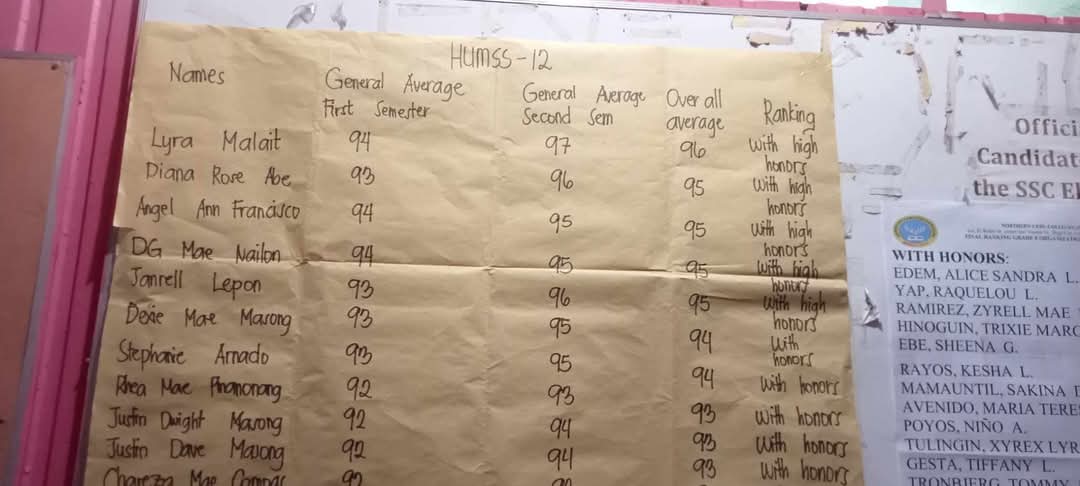 HUMSS-12
Names General Average First Semester General Average Second Sem Over all average Ranking
Lyra Malait 94 97 96 With high honors
Diana Rose Abe 93 96 95 With high honors
Angel Ann Francisco 94 95 95 With high honors
DG Mae Nailon 94 95 95 With high honors
Janrell Lepon 93 96 95 With high honors
Dexie Mae Masong 93 95 94 With honors
Stephanie Arnado 93 95 94 With honors
Rhea Mae 92 93 93 With honors
Justin Dwight Masong 92 94 93 With honors
Justin Dave Masong 92 94 93 With honors
Mae
Offici
Candidat
the SSC El
WITH HONORS:
EDEM, ALICE SANDRA L.
YAP, RAQUELOU L.
RAMIREZ, ZYRELL MAE
HINOGUIN, TRIXIE MARC
EBE, SHEENA G.
RAYOS, KESHA L.
MAMAUNTIL, SAKINA
AVENIDO, MARIA TERE
POYOS, NIÑO A.
TULINGIN, XYREX LYR
GESTA, TIFFANY L.